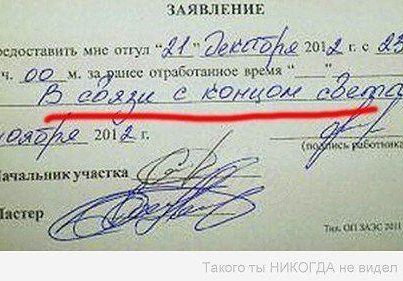 ЗАЯВЛЕНИЕ
редоставить мне отгул "21" декабря 2012 г. с 23
ч. 00 м. за ранее отработанное время "
В связи с концом света
ноября 2012 г.
(подпись работника
Начальник участка
Мастер
Тип. ОП ЗАЭС 2011
Такого ты НИКОГДА не видел